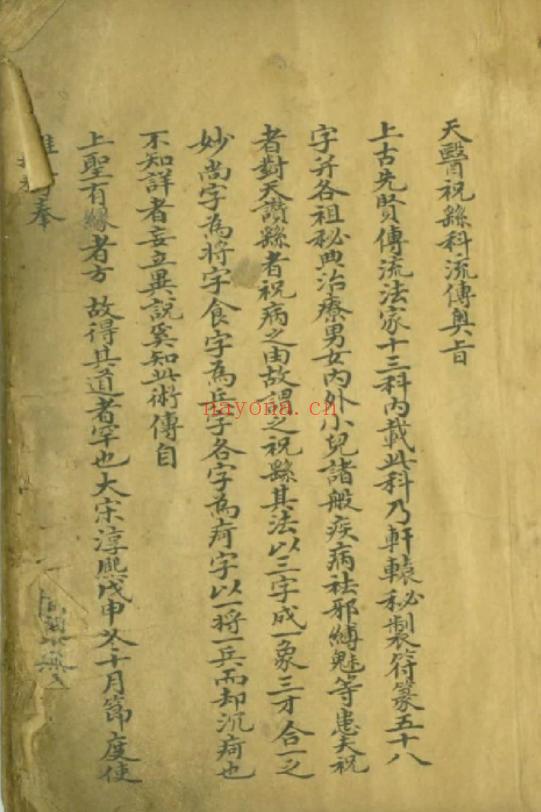 天醫祝繇科流傳奧旨
上古先賢傳流法家十三科內載此科乃軒轅秘製符篆五十八
字并各祖秘典治療男女內外小兒諸般疾病祛邪縛魅等患夫祝
者對天讚繇者祝病之由故謂之祝繇其法以三字成一象三才合一之
妙尚字為將字食字為兵字各字為疴字以一將一兵而却沉疴也
不知詳者妄立異說奚知此術傳自
上聖有緣者方 故得其道者罕也大宋淳熙戊申冬十月節度使
奉
nayona.cn